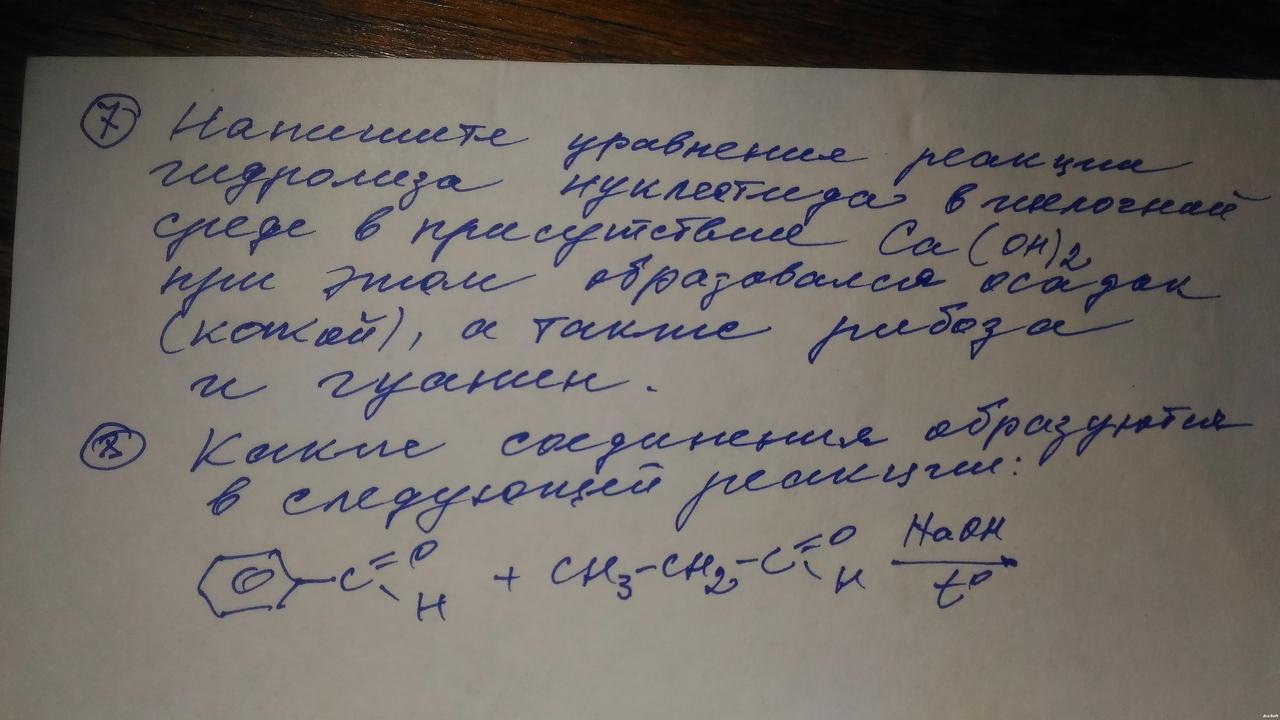 7 Напишите уравнения реакции
гидролиза нуклеотида в щелочной
среде в присутствии Ca(OH)2
при этом образовался осадок
(какой), а также рибоза
и гуанин.
8 Какие соединения образуются
в следующей реакции:
C=O H + CH3-CH2-C=O H NaOH t°